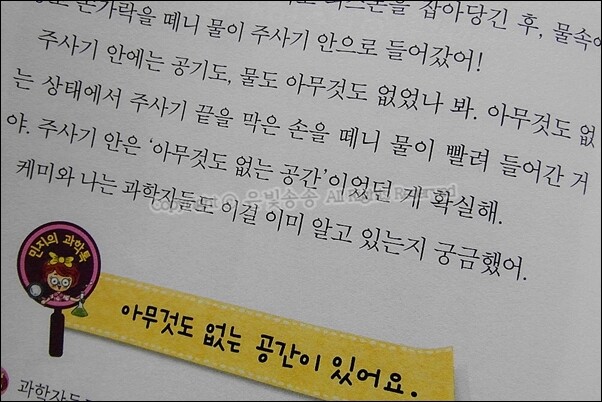 손가락을 떼니 물이 주사기 안으로 들어갔어!
잡아당긴 후, 물속에
주사기 안에는 공기도, 물도 아무것도 없었나 봐. 아무것도 없
는 상태에서 주사기 끝을 막은 손을 떼니 물이 빨려 들어간 거
야. 주사기 안은 ‘아무것도 없는 공간’이었던 게 확실해.
케미와 나는 과학자들도 이걸 이미 알고 있는지 궁금했어.
민지의 과학톡
아무것도 없는 공간이 있어요.